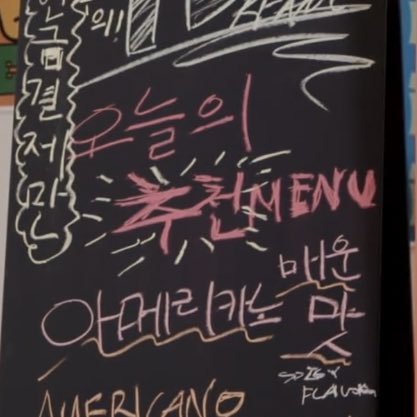 결제만
오늘의
추천MENU
매운
아메리카노 맛
SPICY
FLAVOR
AMERICANO